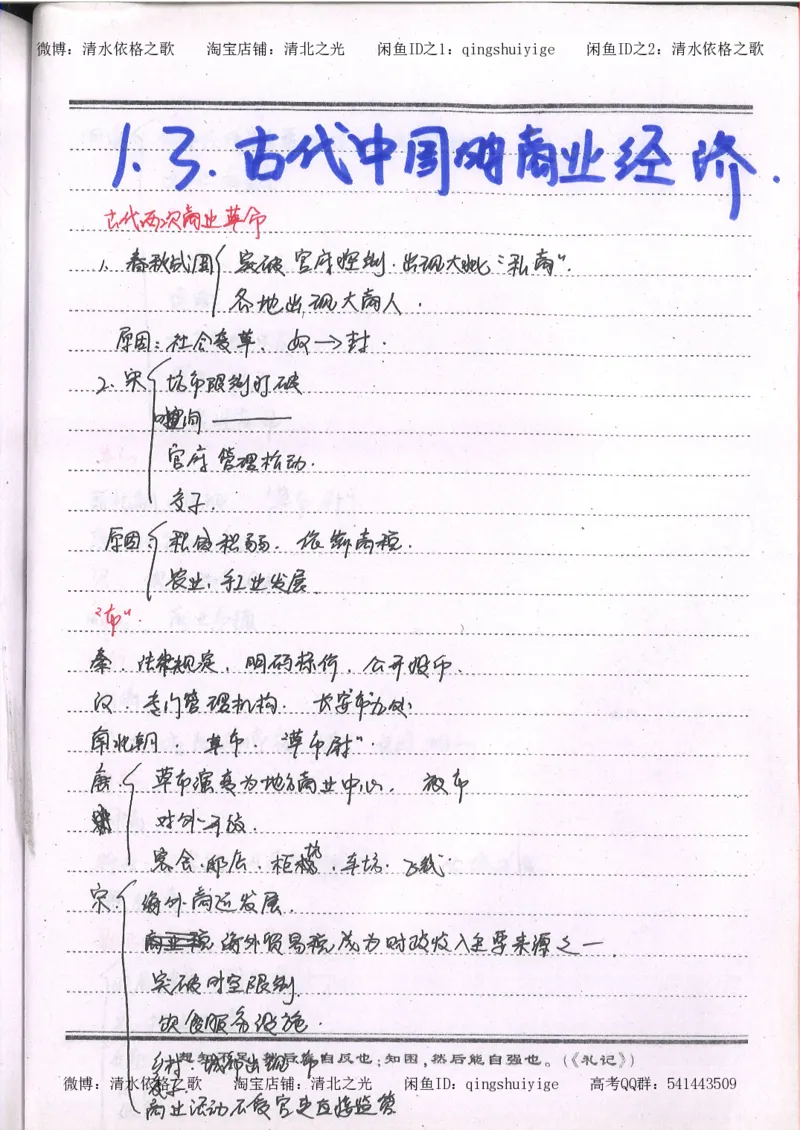 微博：清水依格之歌 淘宝店铺：清北之光 闲鱼ID之1：qingshuiyige 闲鱼ID之2：清水依格之歌
1.3.古代中国的商业经济.
古代两次商业革命
1. 春秋战国 突破官府控制.出现大批"私商".
各地出现大商人.
原因：社会变革、奴→封.
2. 宋 坊市限制打破
时间
官府管理松动.
交子.
原因 积贫积弱. 依靠商税.
农业、手工业发展
"市".
秦. 法律规定, 明码标价, 公开
汉. 专门管理机构. 长安市九处
南北朝. 草市. "草市尉".
唐. 草市演变为地方商业中心. 夜市
对外开放.
邸店. 柜坊. 飞钱
宋. 海外商运发展.
海外贸易税成为财政收入主要来源之一.
突破时空限制.
饮食服务设施.
自反也；知困，然后能自强也。（《礼记》）
乡村、城郊出现市
商业活动不受官吏直接监管
微博：清水依格之歌 淘宝店铺：清北之光 闲鱼ID之1：qingshuiyige 高考QQ群：541443509